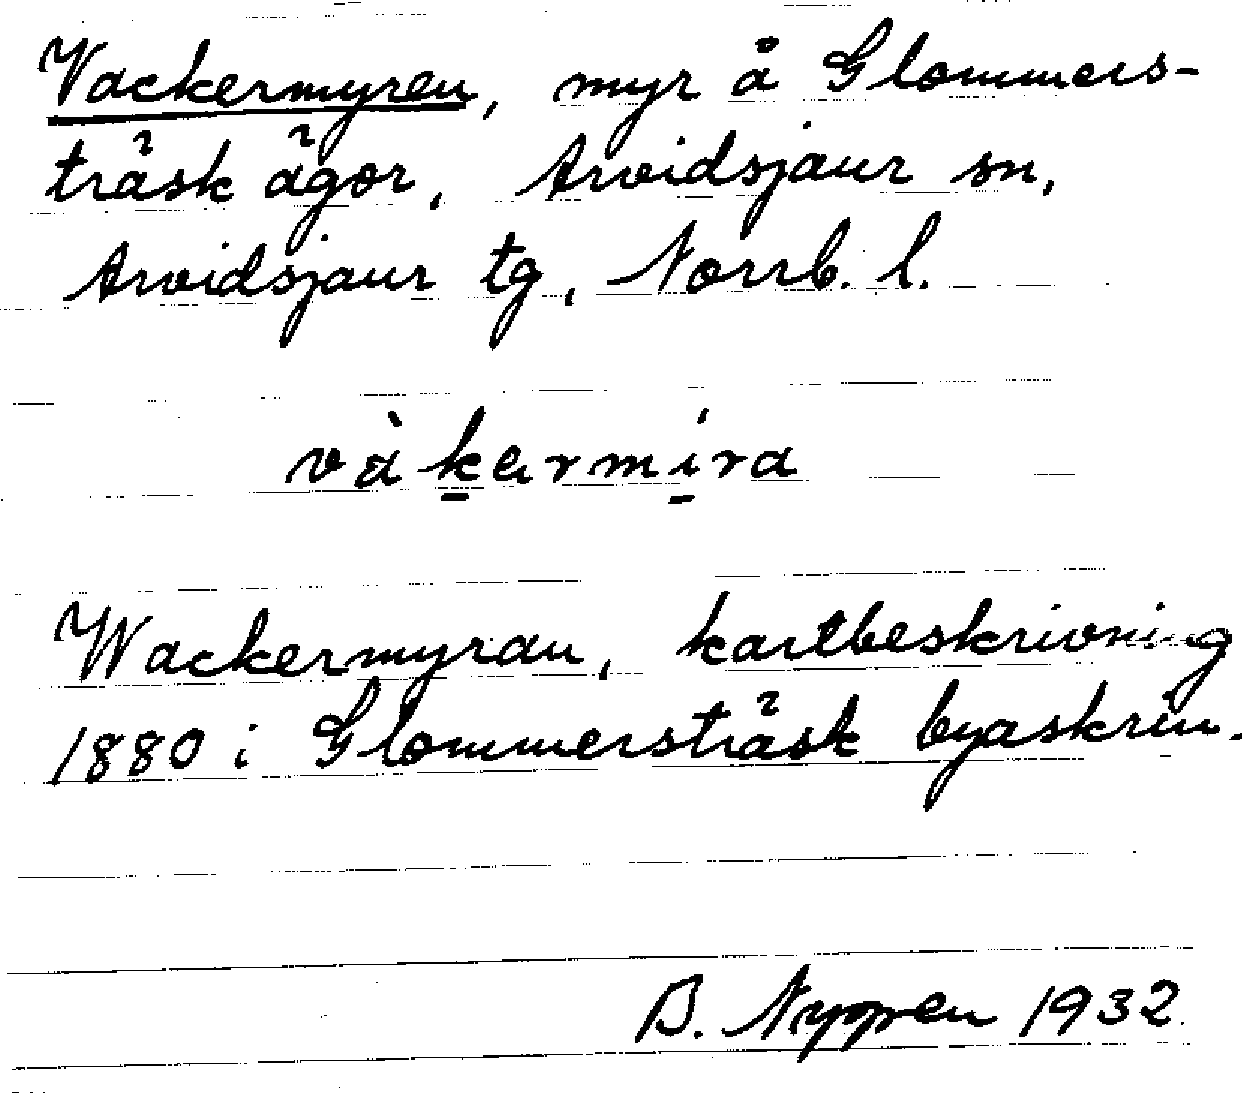 Vackermyren, myr å Glommers-
träsk ägor, Arvidsjaur sn,
Arvidsjaur tg, Norrb. l.
vàkermíra
Wackermyran, kartbeskrivning
1880 i Glommersträsk byaskrin.
B. 1932